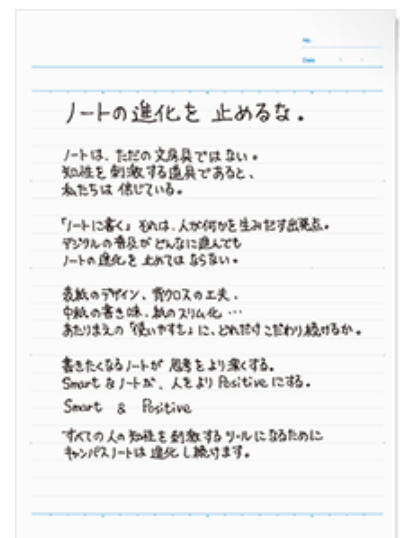 No.
Date
ノートの進化を 止めるな。
ノートは、ただの文房具ではない。
知性を刺激する道具であると、
私たちは信じている。
「ノートに書く」それは、人が何かを生みだす出発点。
デジタルの普及がどんなに進んでも
ノートの進化を止めてはならない。
表紙のデザイン、背クロスの工夫、
中紙の書き味、紙のスリム化…
あたりまえの「使いやすさ」に、どれだけこだわり続けるか。
書きたくなるノートが 思考をより深くする。
Smartなノートが、人をより Positiveにする。
Smart & Positive
すべての人の知性を刺激するツールになるために
キャンパスノートは進化し続けます。